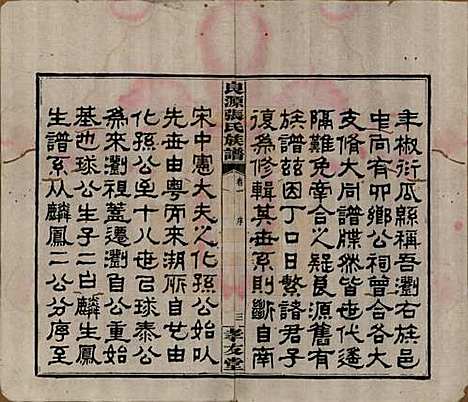 年椒衍瓜緜稱吾瀏右族邑
屯向有卯鄉公祠曾合各大
支脩大同譜牒然皆世代遙
隔難免牽合之疑良源舊有
族譜茲因丁口日繁諸君子
復為修輯其世系則斷自南
良源張氏族譜
卷 序
三
孝友堂
宋中憲大夫人化孫公始以
先世由粵而來湖浙自世由
化孫公至十八世已球泰公
為來瀏祖蓋遷瀏自公重始
基也球公生子二白麟生鳳
生譜系从麟鳳二公分序至